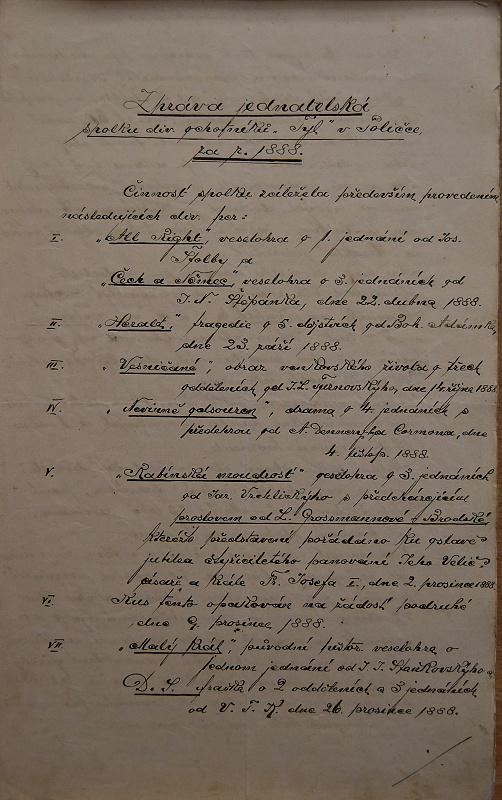 Zpráva jednatelská
spolku div. ochotníků „Tyl" v Poličce,
za r. 1888.
Činnost spolku záležela především provedením
následujících div. her:
I. „All Right", veselohra o 1. jednání od Jos.
Štolby a
„Čech a Němec," veselohra o 3. jednáních od
J. N. Štěpánka, dne 22. dubna 1888.
II. „Herald," tragedie o 5. dějstvích od Boh. Adámka,
dne 23. září 1888.
III. „Vesničané", obraz venkovského života o třech
odděleních, od J. L. Turnovského, dne 14. října 1888
IV. „Nevinně odsouzen", drama o 4. jednáních s
předehrou od A. Dennery-ho Cormona, dne
4. listop. 1888.
V. „Rabínská moudrost" veselohra o 3. jednáních
od Jar. Vrchlického s předcházejícím
proslovem od L. Grossmannové-Brodské,
kteréž představení pořádáno ku oslavě
jubilea čtyřicítiletého panování Jeho Velič.
císaře a krále Fr. Josefa I., dne 2. prosince 1888.
VI. Kus tento opakován na žádost podruhé
dne 9. prosince 1888.
VII. „Malý král", původní histor. veselohra o
jednom jednání od J. J. Stankovského a
D. S. fraška o 2 odděleních a 3 jednáních
od V. F. K. dne 26. prosince 1888.